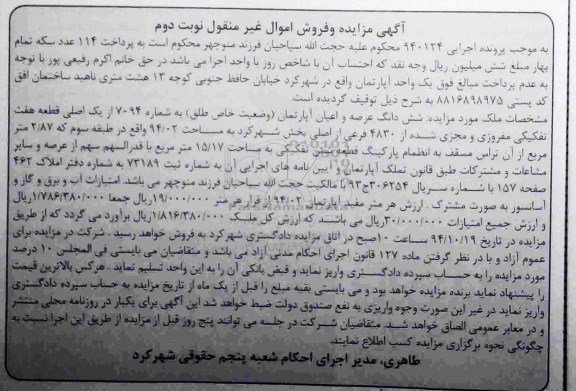 آگهی مزایده وفروش اموال غیر منقول نوبت دوم
به موجب پرونده اجرایی ۹۴۰۱۲۴ محکوم علیه حجت الله سیاحیان فرزند منوچهر محکوم است به پرداخت ۱۱۴ عدد سکه تمام
بهار مبلغ شش میلیون ریال وجه نقد که احتساب آن با شاخص روز با واحد اجرا می باشد در حق خانم اکرم رفیعی پور با توجه
به عدم پرداخت مبالغ فوق یک واحد آپارتمان واقع در شهرکرد خیابان حافظ جنوبی کوچه ۱۳ هشت متری ناهید ساختمان افق
کد پستی ۸۸۱۶۸۹۸۹۷۵ به شرح ذیل توقیف گردیده است.
مشخصات ملک مورد مزایده: شش دانگ عرصه و اعیان آپارتمان (وضعیت خاص طلق) به شماره ۷۰۹۴ از یک اصلی قطعه هفت
تفکیکی مفروزی و مجزی شده از ۴۸۳۰ فرعی از اصلی بخش شهرکرد به مساحت ۹۴/۰۲ واقع در طبقه سوم که ۲/۸۷ متر
مربع از آن تراس مسقف به انظمام پارکینگ قطعه تفکیکی به مساحت ۱۵/۱۷ متر مربع با قدرالسهم سهم از عرصه و سایر
مشاعات و مشترکات طبق قانون تملک آپارتمان و آیین نامه های اجرایی آن به شماره ثبت ۷۳۱۸۹ به شماره دفتر املاک ۴۶۲
صفحه ۱۵۷ با شماره سریال ۳۰۶۲۵۴ج۹۳ با مالکیت حجت الله سیاحیان فرزند منوچهر می باشد. امتیازات آب و برق و گاز و
آسانسور به صورت مشترک . ارزش هر متر مفید آپارتمان ۹۴/۰۲ از قرار هر متر ۱۹/۰۰۰/۰۰۰ریال جمعا ۱/۷۸۶/۳۸۰/۰۰۰ریال
و ارزش جمیع امتیازات ۳۰/۰۰۰/۰۰۰ریال می باشند که ارزش کل ملک ۱/۸۱۶/۳۸۰/۰۰۰ریال برآورد می گردد که از طریق
مزایده در تاریخ ۹۴/۱۰/۱۹ ساعت ۱۰صبح در اتاق مزایده دادگستری شهرکرد به فروش خواهد رسید . شرکت در مزایده برای
عموم آزاد و با در نظر گرفتن ماده ۱۲۷ قانون اجرای احکام مدنی آزاد می باشد و متقاضیان می بایستی فی المجلس ۱۰ درصد
مورد مزایده را به حساب سپرده دادگستری واریز نماید و فیض بانکی آن را به این واحد تسلیم نماید . هرکس بالاترین قیمت
را پیشنهاد نماید برنده مزایده خواهد بود و می بایستی بقیه مبلغ را قبل از یک ماه از تاریخ مزایده به حساب سپرده دادگستری
واریز نماید در غیر این صورت وجوه واریزی به نفع صندوق دولت ضبط خواهد شد این آگهی برای یکبار در روزنامه محلی منتشر
و در معابر عمومی الصاق خواهد شد. متقاضیان شرکت در جلسه می توانند پنج روز قبل از مزایده از طریق این اجرا نسبت به
چگونگی نحوه برگزاری مزایده کسب اطلاع نمایند.
طاهری، مدیر اجرای احکام شعبه پنجم حقوقی شهرکرد